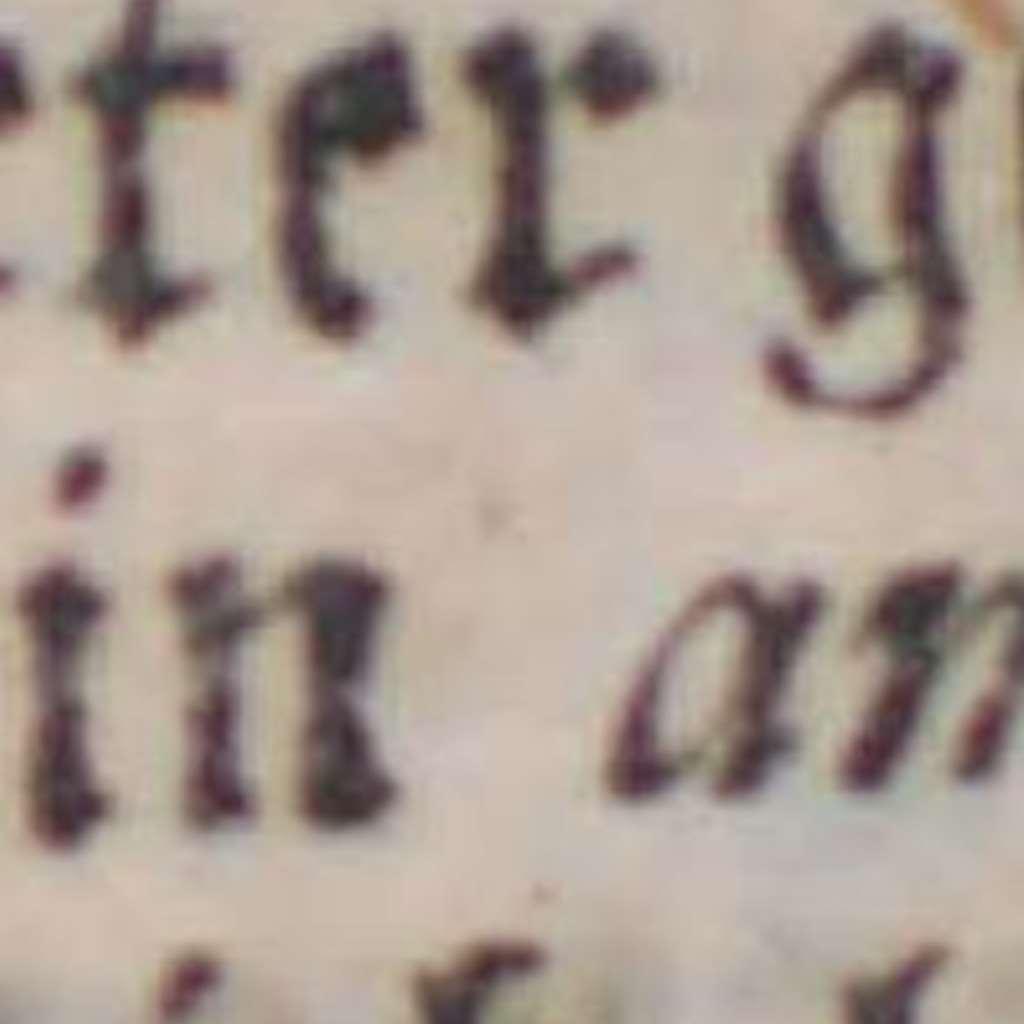 ter g
in an